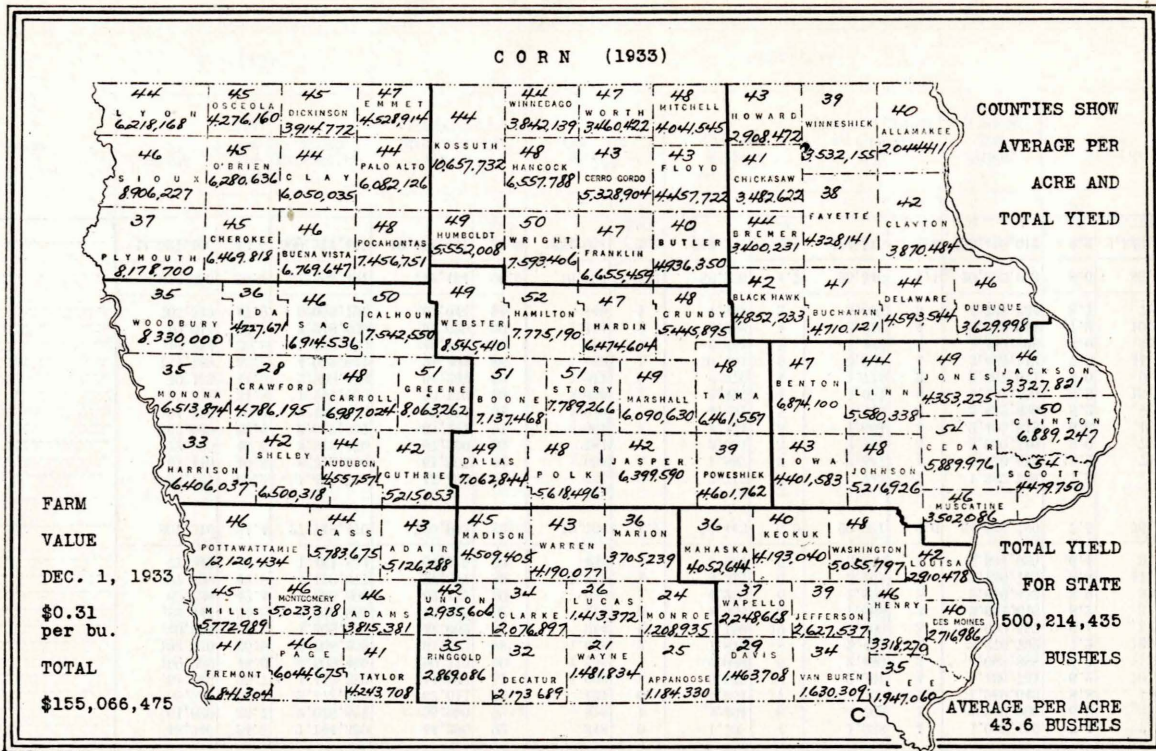 CORN (1933)
COUNTIES SHOW
AVERAGE PER
ACRE AND
TOTAL YIELD
44 LYON 6,218,168
45 OSCEOLA 4,276,160
45 DICKINSON 3,914,772
47 EMMET 4,528,914
44 KOSSUTH 10,657,732
44 WINNEBAGO 3,842,139
47 WORTH 3,460,422
48 MITCHELL 4,041,545
43 HOWARD 2,908,472
39 WINNESHIEK 3,532,155
40 ALLAMAKEE 2,044,411
46 SIOUX 8,906,227
45 O'BRIEN 6,280,636
44 CLAY 6,050,035
44 PALO ALTO 6,082,126
48 HANCOCK 6,557,788
43 CERRO GORDO 5,328,904
43 FLOYD 4,457,722
41 CHICKASAW 3,482,622
37 PLYMOUTH 8,178,700
45 CHEROKEE 6,469,818
46 BUENA VISTA 6,769,647
48 POCAHONTAS 7,456,751
49 HUMBOLDT 5,552,008
50 WRIGHT 7,593,406
47 FRANKLIN 6,655,459
40 BUTLER 4,936,350
44 BREMER 3,400,231
38 FAYETTE 4,328,141
42 CLAYTON 3,870,484
35 WOODBURY 8,330,000
36 IDA 4,227,671
46 SAC 6,914,536
50 CALHOUN 7,542,550
49 WEBSTER 8,545,410
52 HAMILTON 7,775,190
47 HARDIN 6,474,604
48 GRUNDY 5,445,895
42 BLACK HAWK 4,852,233
41 BUCHANAN 4,710,121
44 DELAWARE 4,593,544
46 DUBUQUE 3,629,998
35 MONONA 6,513,874
28 CRAWFORD 4,786,195
48 CARROLL 6,987,024
51 GREENE 8,063,262
51 BOONE 7,137,468
51 STORY 7,789,266
49 MARSHALL 6,090,630
48 TAMA 6,461,557
47 BENTON 6,874,100
44 LINN 5,580,338
49 JONES 4,353,225
46 JACKSON 3,327,821
50 CLINTON 6,889,247
33 HARRISON 6,406,037
42 SHELBY 6,500,318
44 AUDUBON 4,557,57
42 GUTHRIE 5,215,053
49 DALLAS 7,062,844
48 POLK 5,618,496
42 JASPER 6,399,590
39 POWESHIEK 4,601,762
43 IOWA 4,401,583
48 JOHNSON 5,216,926
54 CEDAR 5,889,976
54 SCOTT 4,479,750
46 MUSCATINE 3,502,086
46 POTTAWATTAMIE 12,120,434
44 CASS 5,783,675
43 ADAIR 5,126,288
45 MADISON 4,509,405
43 WARREN 4,190,077
36 MARION 3,705,239
36 MAHASKA 4,052,644
40 KEOKUK 4,193,040
48 WASHINGTON 5,055,797
42 LOUISA 2,910,478
45 MILLS 5,772,989
46 MONTGOMERY 5,023,318
46 ADAMS 3,815,381
42 UNION 2,935,606
34 CLARKE 2,076,897
26 LUCAS 1,413,372
24 MONROE 1,208,935
37 WAPELLO 2,248,668
39 JEFFERSON 2,627,537
46 HENRY 3,318,270
40 DES MOINES 2,716,986
41 FREMONT 6,841,304
46 PAGE 6,044,675
41 TAYLOR 4,243,708
35 RINGGOLD 2,869,086
32 DECATUR 2,173,689
21 WAYNE 1,481,834
25 APPANOOSE 1,184,330
29 DAVIS 1,463,708
34 VAN BUREN 1,630,309
35 LEE 1,947,060
FARM
VALUE
DEC. 1, 1933
$0.31
per bu.
TOTAL
$155,066,475
TOTAL YIELD
FOR STATE
500,214,435
BUSHELS
AVERAGE PER ACRE
43.6 BUSHELS
C